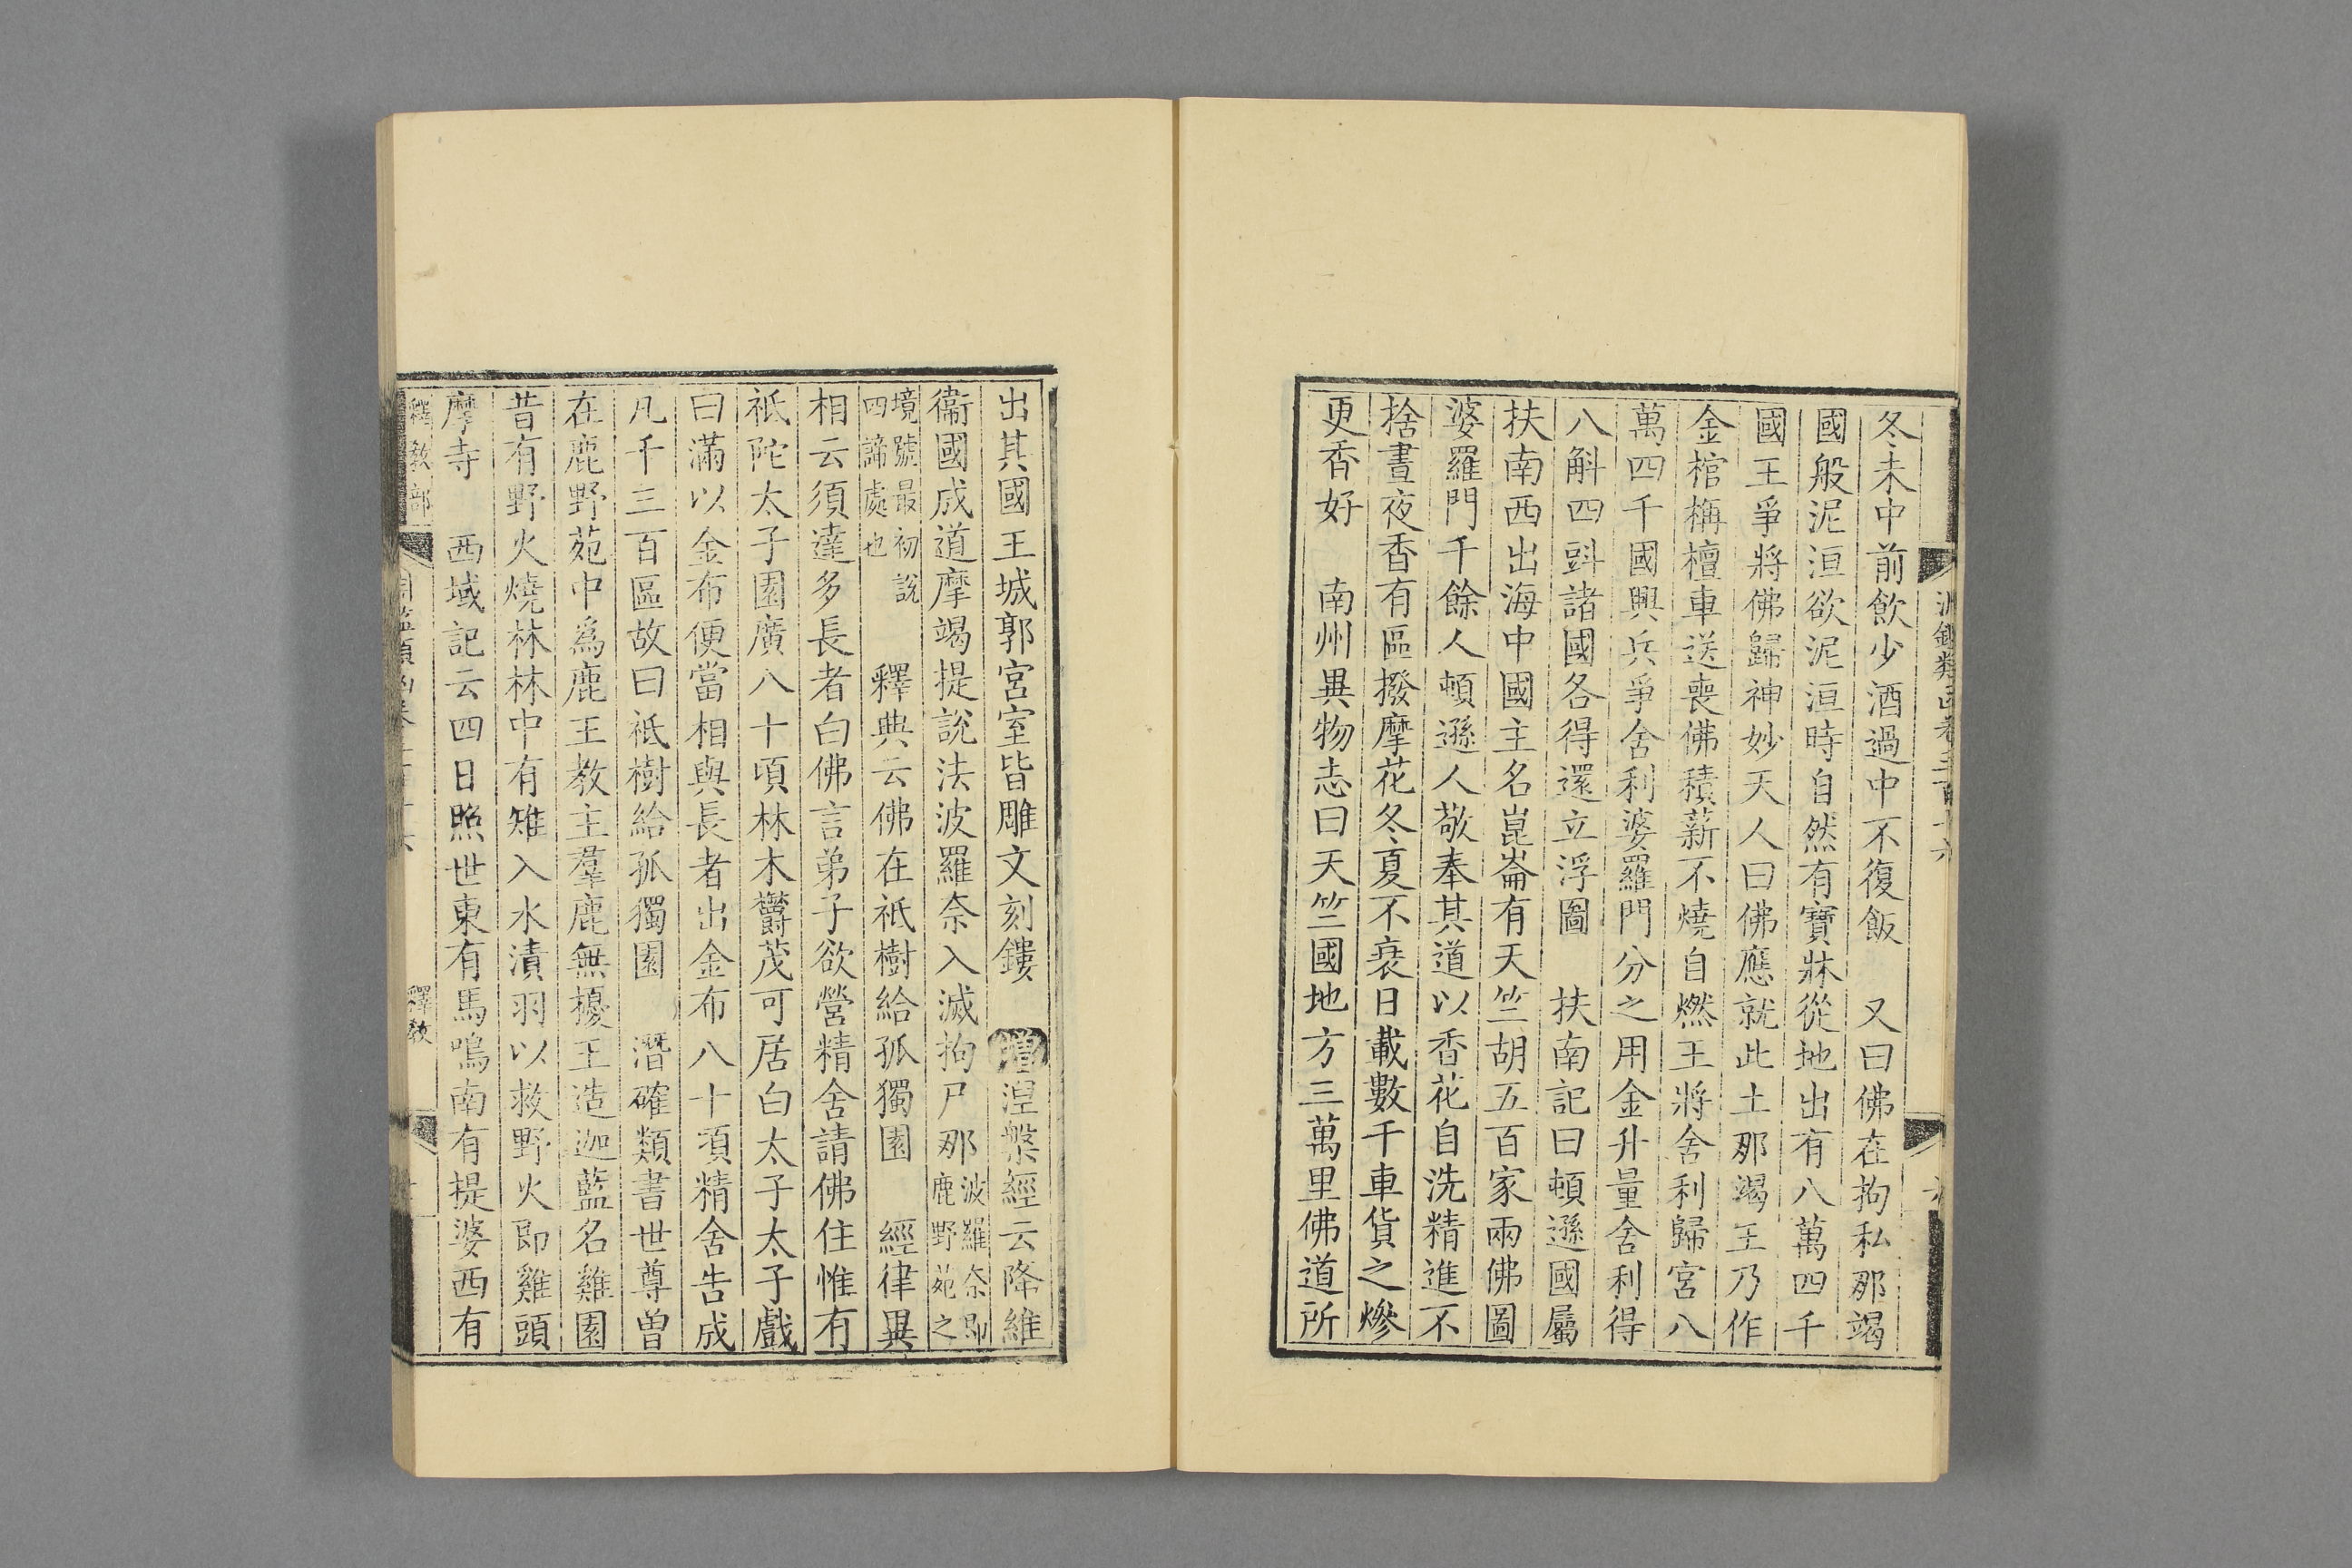 冬未中前飲少酒過中不復飯　又曰佛在拘私那竭
國般泥洹欲泥洹時自然有寶牀從地出有八萬四千
國王爭將佛歸神妙天人曰佛應就此土那竭王乃作
金棺栴檀車送喪佛積薪不燒自燃王將舍利歸宮八
萬四千國興兵爭舍利婆羅門分之用金升量舍利得
八斛四㪷諸國各得還立浮圖　扶南記曰頓遜國屬
扶南西出海中國主名崑崙有天竺胡五百家兩佛圖
婆羅門千餘人頓遜人敬奉其道以香花自洗精進不
捨晝夜香有區撥摩花冬夏不衰日載數千車貨之燥
更香好　南州異物志曰天竺國地方三萬里佛道所
出其國王城郭宮室皆雕文刻鏤　增涅槃經云降維
衞國成道摩竭提說法波羅奈入滅拘尸那波羅奈即鹿野苑之
境號最初說四諦處也　釋典云佛在祇樹給孤獨園　經律異
相云須達多長者白佛言弟子欲營精舍請佛住惟有
祇陀太子園廣八十頃林木鬱茂可居白太子太子戲
曰滿以金布便當相與長者出金布八十頃精舍告成
凡千三百區故曰祇樹給孤獨園　潛確類書世尊曾
在鹿野苑中爲鹿王教主羣鹿無擾王造迦藍名雞園
昔有野火燒林林中有雉入水漬羽以救野火即雞頭
摩寺　西域記云四日照世東有馬鳴南有提婆西有
釋教部
釋教